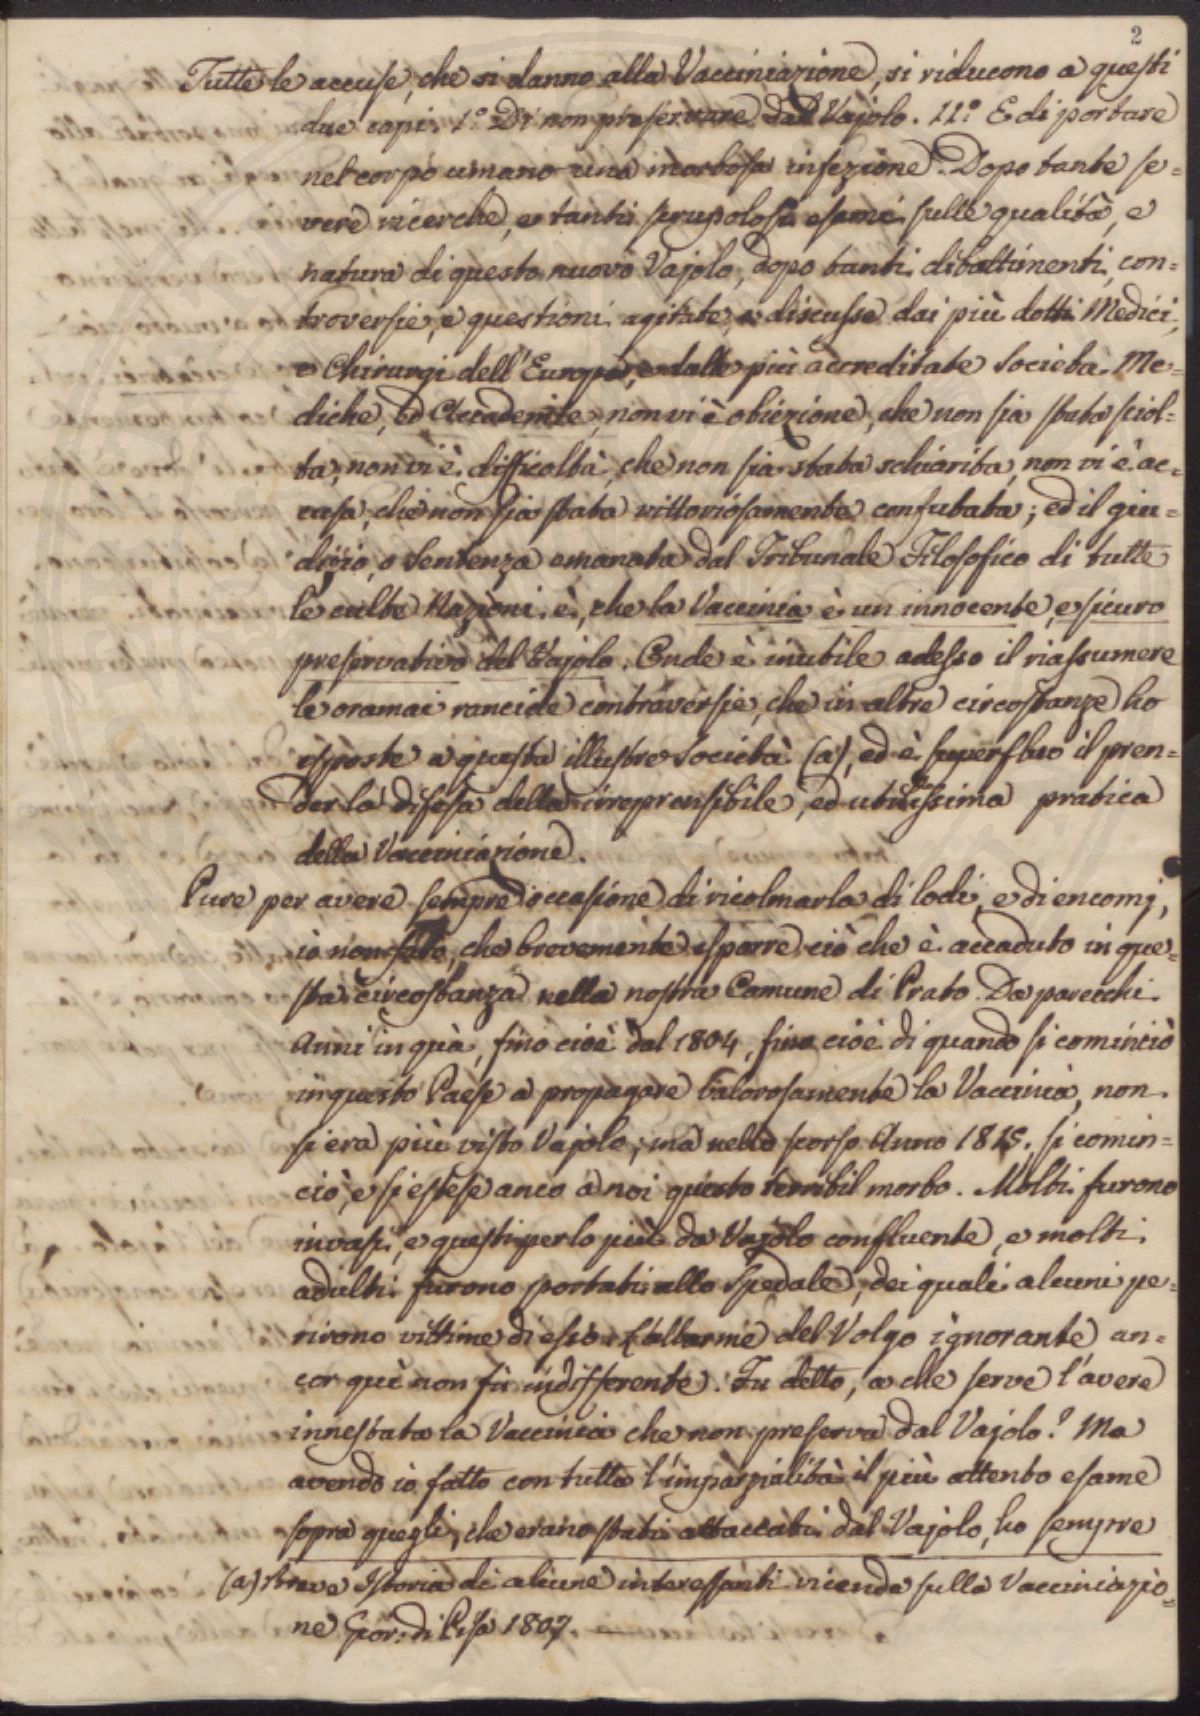 2
Tutte le accuse, che si danno alla Vacciniazione, si riducono a questi
due capi: 1.° Di non preservare dal Vajolo. 11.° E di portare
nel corpo umano una morbosa infezione. Dopo tante se=
vere ricerche, e tanti scrupolosi esami sulle qualità, e
natura di questo nuovo Vajolo, dopo tanti dibattimenti, con=
troversie, e questioni agitate, e discusse dai più dotti Medici,
e Chirurgi dell'Europa, e dalle più accreditate Società Me=
diche, ed Accademie, non vi è obiezione, che non sia stata sciol=
ta, non vi è difficoltà, che non sia stata schiarita, non vi è ac=
cusa, che non sia stata vittoriosamente confutata; ed il giu=
dizio, o Sentenza emanata dal Tribunale Filosofico di tutte
le culte Nazioni è, che la Vaccinia è un innocente, e sicuro
preservativo del Vajolo. Onde è inutile adesso il riassumere
le oramai rancide controversie, che in altre circostanze ho
esposte a questa illustre Società (a), ed è superfluo il pren=
der la difesa della irreprensibile, ed utilissima pratica
della Vacciniazione.
Pure per avere sempre occasione di ricolmarla di lodi, e di encomj,
io non fo, che brevemente esporre ciò che è accaduto in que=
sta circostanza nella nostra Comune di Prato. Da parecchi
Anni in quà, fino cioè dal 1804, fino cioè di quando si cominciò
in questo Paese a propagare valorosamente la Vaccinia, non
si era più visto Vajolo; ma nello scorso Anno 1815. si comin=
ciò, e si estese anco a noi questo terribil morbo. Molti furono
invasi, e questi per lo più da Vajolo confluente, e molti
adulti furono portati allo Spedale, dei quali alcuni pe=
rirono vittime di esso. L'allarme del Volgo ignorante an=
cor quì non fù indifferente. Fu detto, a che serve l'avere
innestata la Vaccinia che non preserva dal Vajolo? Ma
avendo io fatto con tutta l'imparzialità il più attento esame
sopra quegli, che erano stati attaccati dal Vajolo, ho sempre
(a) Breve Istoria di alcune interessanti vicende sulla Vacciniazio=
ne Gior: di Pisa 1807.